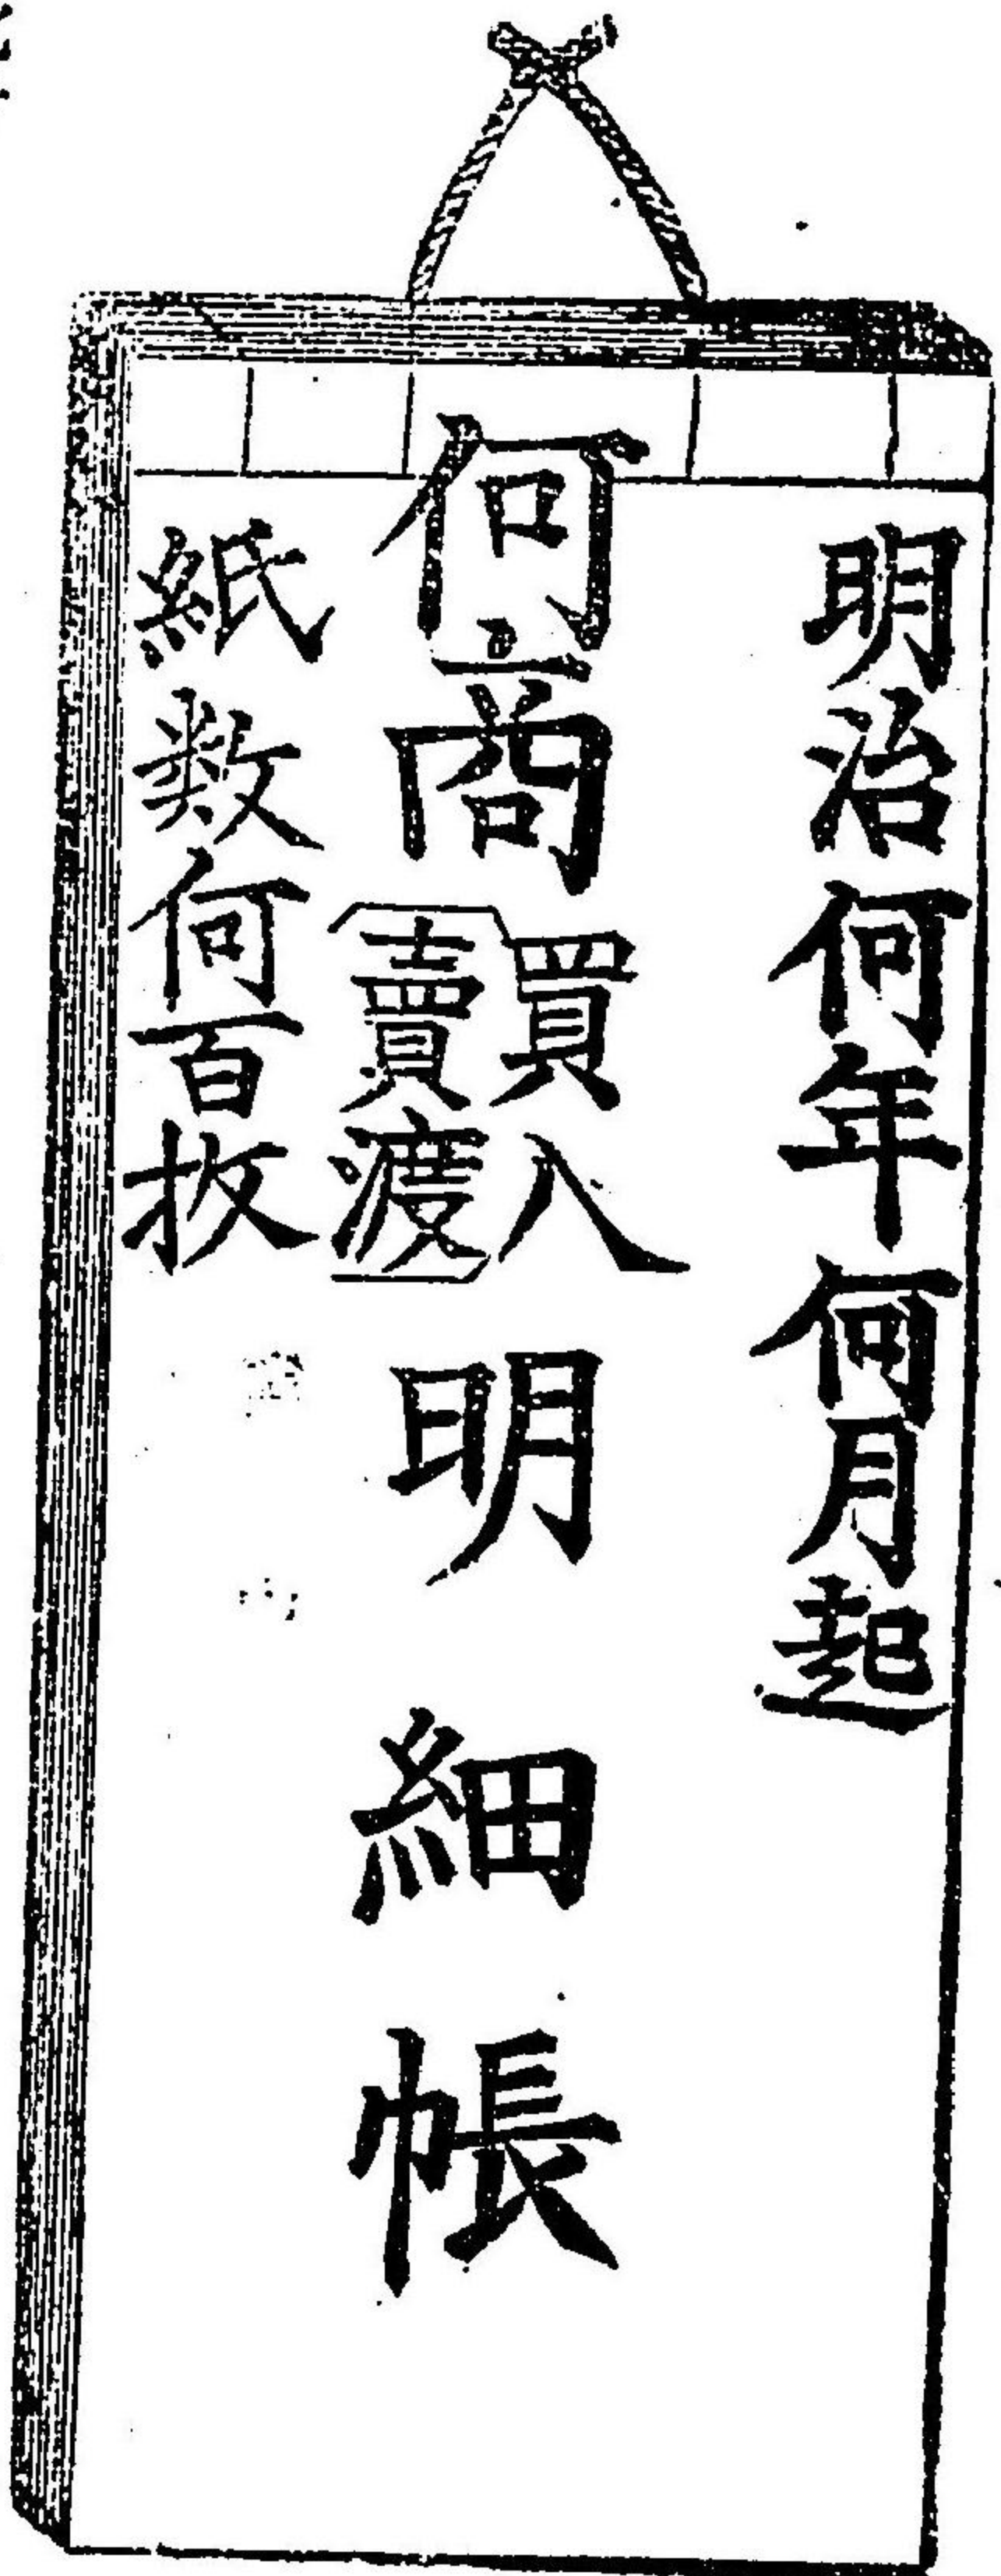 明治何年何月起
何商買入
賣渡
明細帳
紙数何百枚